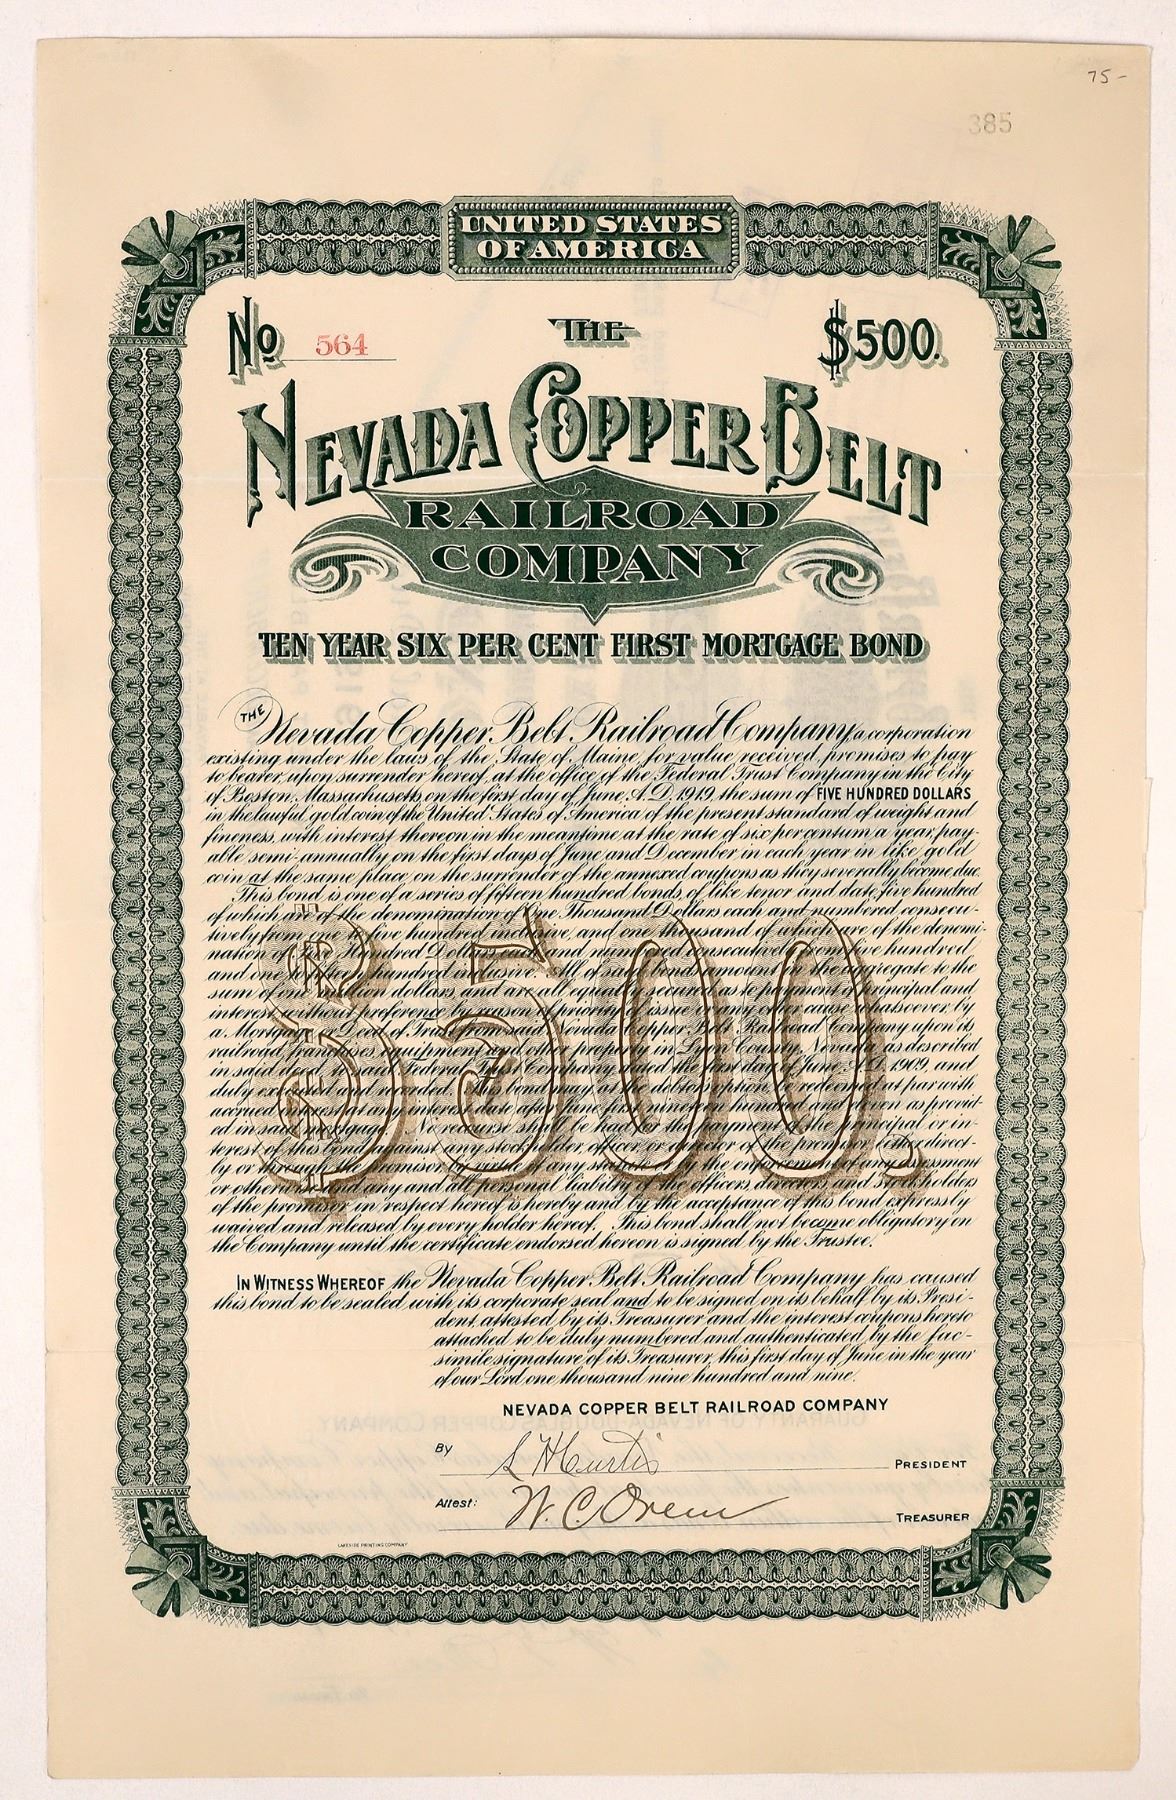 75-
385
UNITED STATES
OF AMERICA
No 564
THE
$500.
NEVADA COPPER BELT
RAILROAD
COMPANY
TEN YEAR SIX PER CENT FIRST MORTGAGE BOND
THE Nevada Copper Belt Railroad Company a corporation
existing under the laws of the State of Maine, for value received, promises to pay
to bearer, upon surrender hereof, at the office of the Federal Trust Company in the City
of Boston, Massachusetts, on the first day of June, A.D. 1919, the sum of FIVE HUNDRED DOLLARS
in the lawful gold coin of the United States of America of the present standard of weight and
fineness, with interest thereon in the meantime at the rate of six per centum a year, pay-
able semi-annually on the first days of June and December in each year in like gold
coin at the same place on the surrender of the annexed coupons as they severally become due.
This bond is one of a series of fifteen hundred bonds of like tenor and date, five hundred
of which are of the denomination of One Thousand Dollars each and numbered consecu-
tively from one to five hundred inclusive, and one thousand of which are of the denomi-
nation of Five Hundred Dollars each and numbered consecutively from five hundred
and one to fifteen hundred inclusive. All of said bonds amount in the aggregate to the
sum of one million dollars, and are all equally secured as to payment of principal and
interest without preference by reason of priority of issue or any other cause whatsoever, by
a Mortgage or Deed of Trust from said Nevada Copper Belt Railroad Company upon its
railroad, franchises, equipment and other property in Lyon County, Nevada, as described
in said deed, to said Federal Trust Company, dated the first day of June, A.D. 1909, and
duly executed and recorded. This bond may at the debtor's option, be redeemed at par with
accrued interest at any interest date after June first nineteen hundred and eleven as provid-
ed in said mortgage. No recourse shall be had for the payment of the principal or in-
terest of this bond against any stockholder, officer or director of the promisor either direct-
ly or through the promisor by virtue of any statute or by the enforcement of any assessment
or otherwise and any and all personal liability of the officers, directors, and stockholders
of the promisor in respect hereof is hereby and by the acceptance of this bond expressly
waived and released by every holder hereof. This bond shall not become obligatory on
the Company until the certificate endorsed hereon is signed by the Trustee.
$500.
IN WITNESS WHEREOF the Nevada Copper Belt Railroad Company has caused
this bond to be sealed with its corporate seal and to be signed on its behalf by its Presi-
dent, attested by its Treasurer and the interest coupons hereto
attached to be duly numbered and authenticated by the fac-
simile signature of its Treasurer, this first day of June in the year
of our Lord one thousand nine hundred and nine.
NEVADA COPPER BELT RAILROAD COMPANY
By S H Curtis PRESIDENT
Attest: W. C. Orem TREASURER
LAKESIDE PRINTING COMPANY